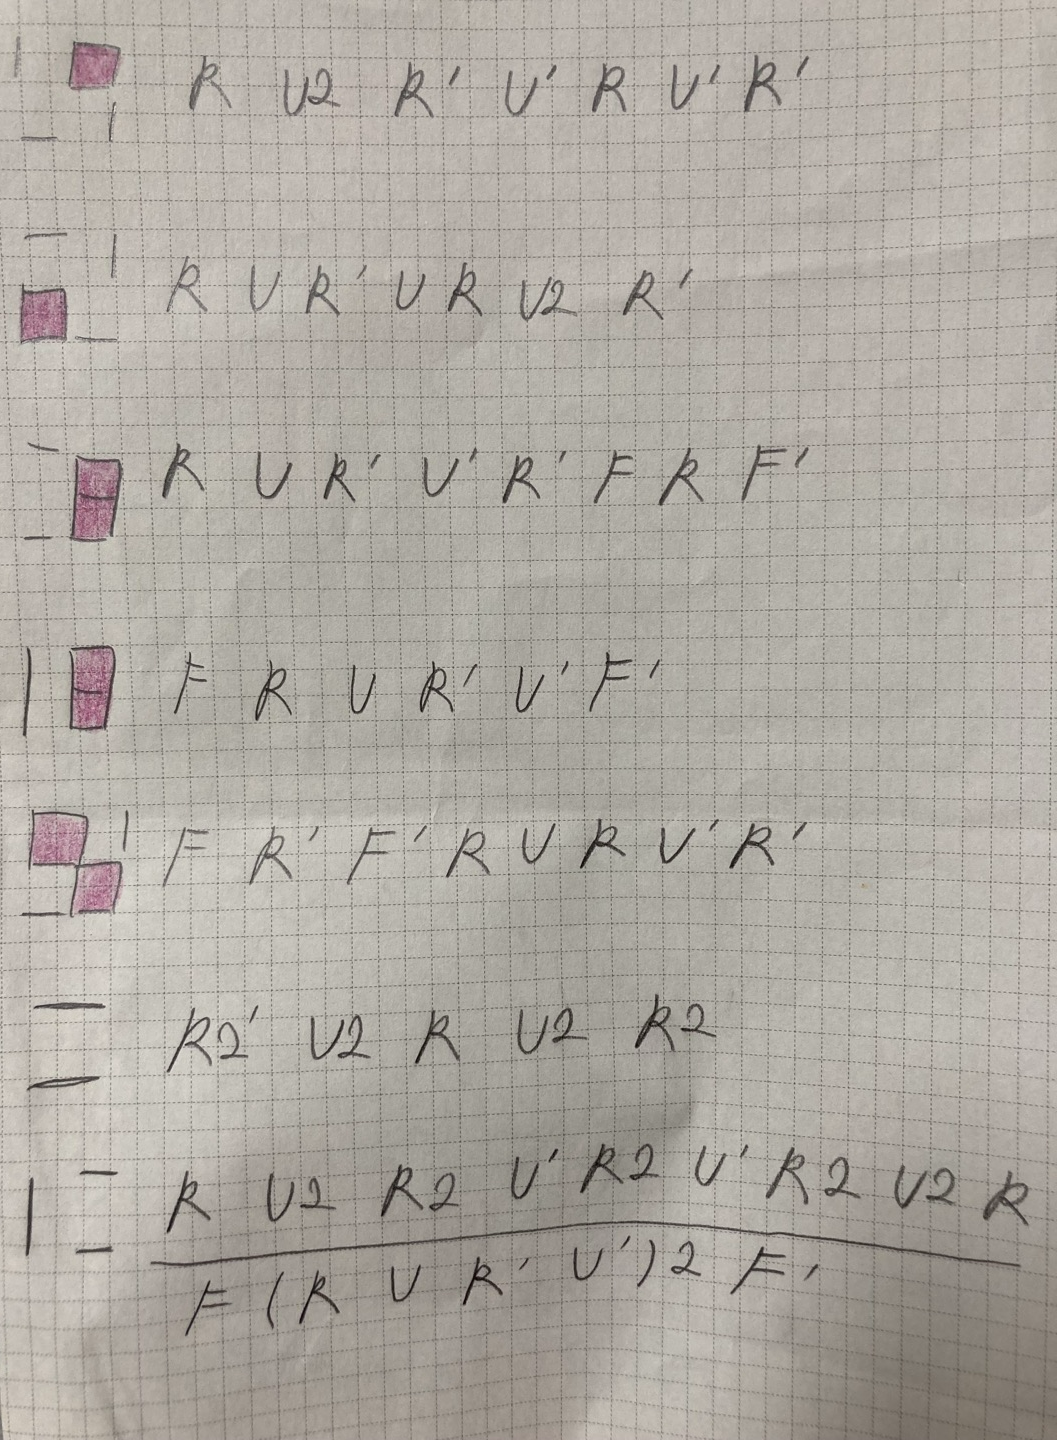 R U2 R' U' R U' R'
R U R' U R U2 R'
R U R' U' R' F R F'
F R U R' U' F'
F R' F' R U R U' R'
R2' U2 R U2 R2
R U2 R2 U' R2 U' R2 U2 R
F (R U R' U')2 F'